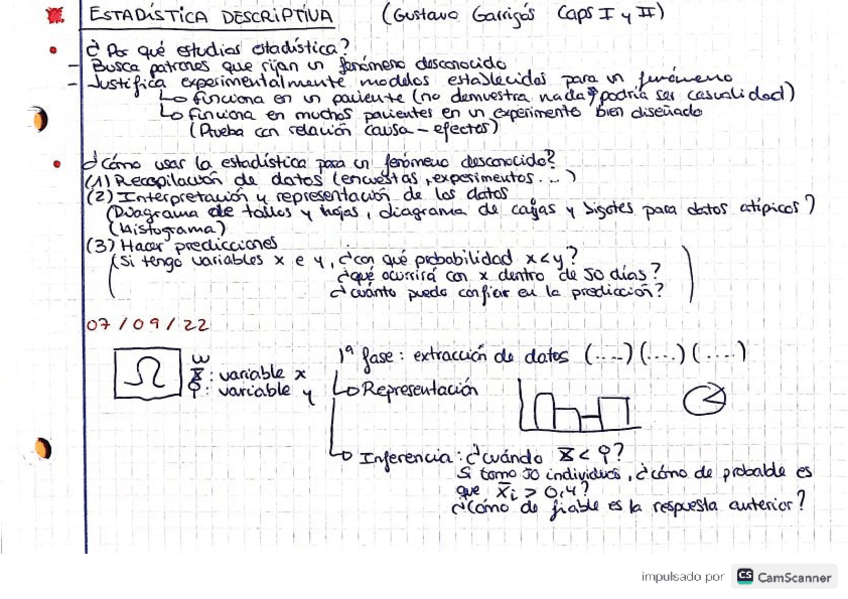 ESTADÍSTICA DESCRIPTIVA (Gustavo Garrigós Caps I y II)
¿Por qué estudias estadística?
- Busca patrones que rijan un fenómeno desconocido
- Justifica experimentalmente modelos establecidos para un fenómeno
↳ Funciona en un paciente (no demuestra nada, podría ser casualidad)
↳ Funciona en muchos pacientes en un experimento bien diseñado
(Prueba con relación causa-efectos)
¿Cómo usar la estadística para un fenómeno desconocido?
(1) Recopilación de datos (encuestas, experimentos...)
(2) Interpretación y representación de los datos
(Diagrama de tallos y hojas, diagrama de cajas y bigotes para datos atípicos?)
(Histograma)
(3) Hacer predicciones
(Si tengo variables x e y, ¿con qué probabilidad x<y?
¿qué ocurrirá con x dentro de 50 días?
¿cuánto puedo confiar en la predicción?)
07/09/22
Ω
ω
: variable x
: variable y
1ª fase: extracción de datos (....) (....) (....)
↳ Representación
↳ Inferencia: ¿cuándo
Si tomo 50 individuos, ¿cómo de probable es
que x̄i > 0,4?
¿Cómo de fiable es la respuesta anterior?
impulsado por CS CamScanner